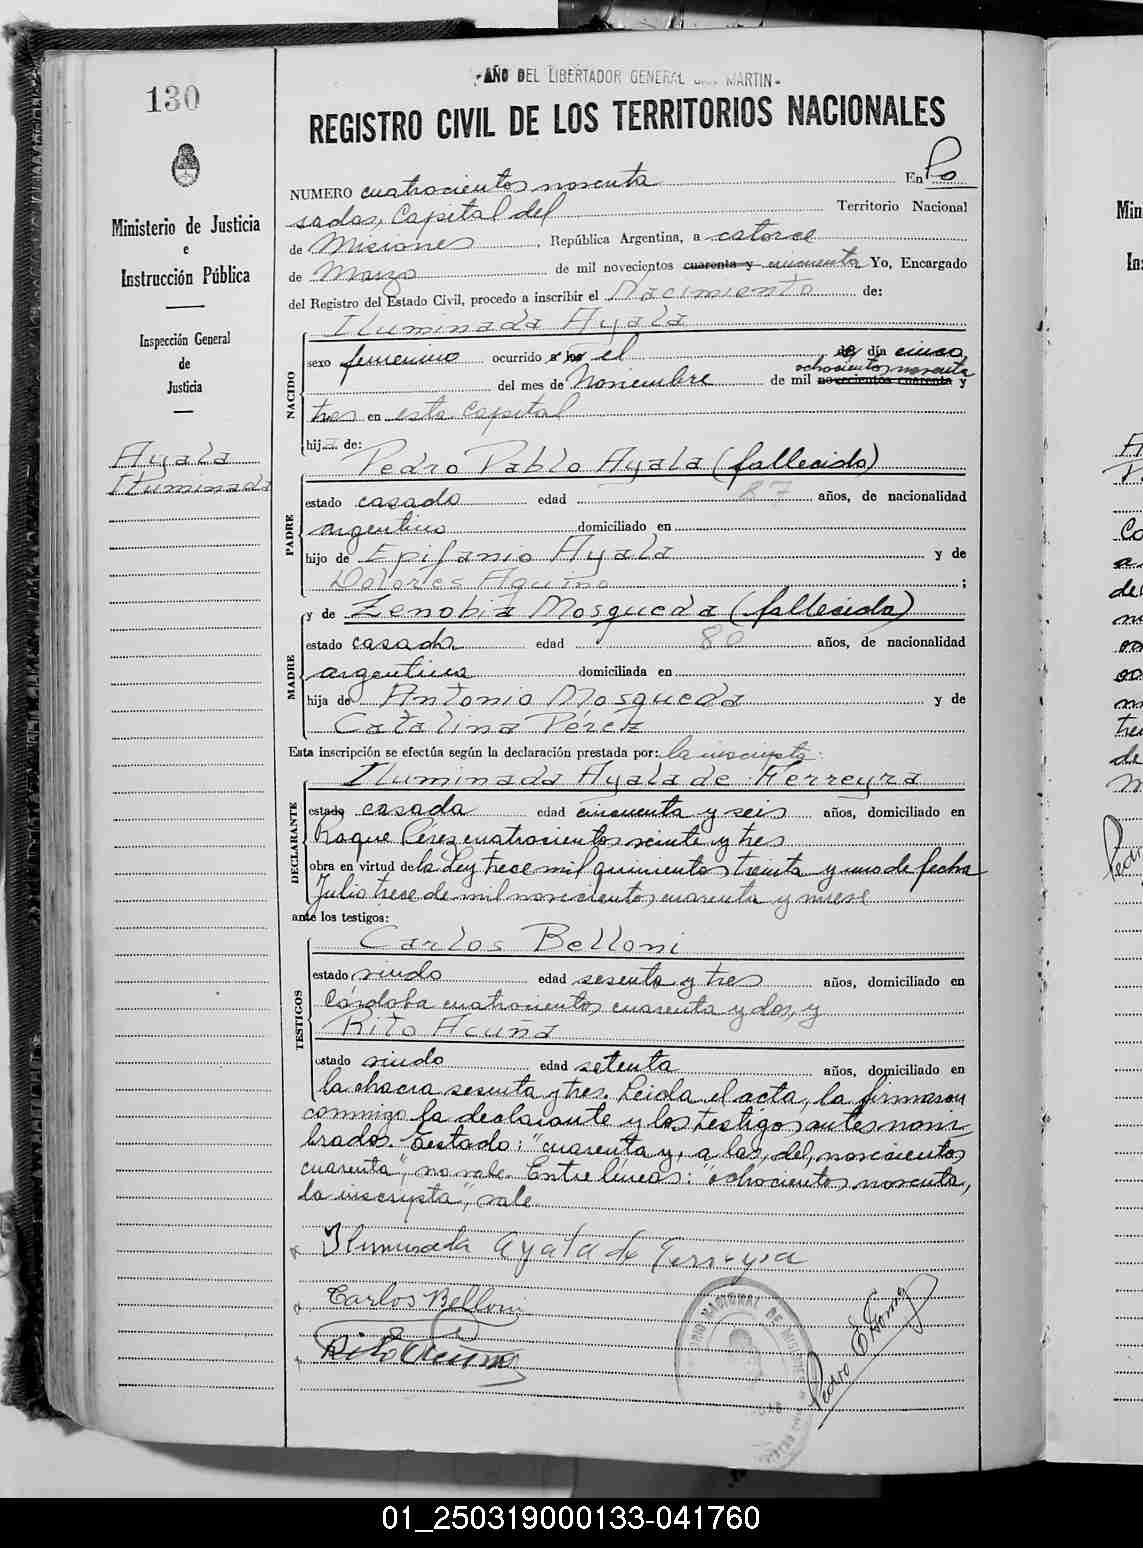 130
-AÑO DEL LIBERTADOR GENERAL SAN MARTIN-
REGISTRO CIVIL DE LOS TERRITORIOS NACIONALES
Ministerio de Justicia
e
Instrucción Pública
Inspección General
de
Justicia
Ayala
Iluminada
NUMERO cuatrocientos noventa En Po
sadas, Capital del Territorio Nacional
de Misiones, República Argentina, a catorce
de Marzo de mil novecientos cuarenta y cincuenta Yo, Encargado
del Registro del Estado Civil, procedo a inscribir el Nacimiento de:
Iluminada Ayala
NACIDO
sexo femenino ocurrido a las el del día cinco
ochocientos noventa
del mes de Noviembre de mil novecientos cuarenta y
tres en esta Capital
hija de:
Pedro Pablo Ayala (fallecido)
PADRE
estado casado edad 87 años, de nacionalidad
argentino domiciliado en
hijo de Epifanio Ayala y de
Dolores Aquino ;
y de Zenobia Mosqueda (fallecida)
MADRE
estado casada edad 80 años, de nacionalidad
argentina domiciliada en
hija de Antonio Mosqueda y de
Catalina Pérez
Esta inscripción se efectúa según la declaración prestada por: la inscripta
Iluminada Ayala de Ferreyra
DECLARANTE
estado casada edad cincuenta y seis años, domiciliado en
Roque Perez cuatrocientos veinte y tres
obra en virtud de la Ley trece mil quinientos treinta y uno de fecha
Julio trece de mil novecientos cuarenta y nueve
ante los testigos:
Carlos Belloni
TESTIGOS
estado viudo edad sesenta y tres años, domiciliado en
Córdoba cuatrocientos cuarenta y dos, y
Rito Acuña
estado viudo edad setenta años, domiciliado en
la chacra sesenta y tres. Leida el acta, la firmaron
conmigo la declarante y los testigos antes nom-
brados. Testado: "cuarenta y, a las, del, novecientos
cuarenta", no vale. Entre líneas: "ochocientos noventa,
la inscripta", vale.
Iluminada Ayala de Ferreyra
Carlos Belloni
Rito Acuña
Pedro E
01_250319000133-041760